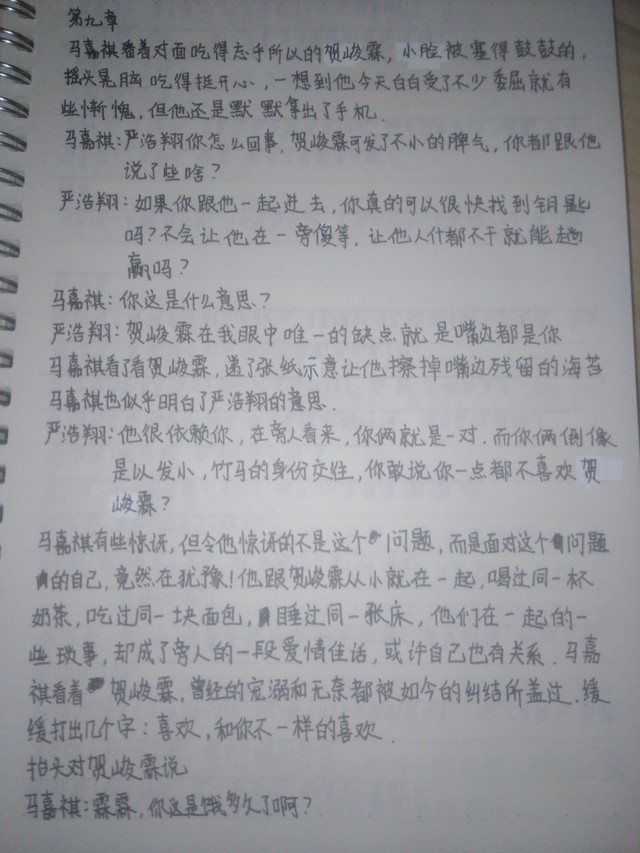 第九章
马嘉祺看着对面吃得忘乎所以的贺峻霖，小脸被塞得鼓鼓的，
摇头晃脑吃得挺开心，一想到他今天白白受了不少委屈就有
些惭愧，但他还是默默拿出了手机．
马嘉祺：严浩翔你怎么回事，贺峻霖可发了不小的脾气，你都跟他
说了些啥？
严浩翔：如果你跟他一起进去，你真的可以很快找到钥匙
吗？不会让他在一旁傻等，让他人什都不干就能趟
赢吗？
马嘉祺：你这是什么意思？
严浩翔：贺峻霖在我眼中唯一的缺点就是嘴边都是你
马嘉祺看了看贺峻霖，递了张纸示意让他擦掉嘴边残留的海苔
马嘉祺也似乎明白了严浩翔的意思．
严浩翔：他很依赖你，在旁人看来，你俩就是一对．而你俩倒像
是以发小，竹马的身份交往，你敢说你一点都不喜欢贺
峻霖？
马嘉祺有些惊讶，但令他惊讶的不是这个问题，而是面对这个问题
的自己，竟然在犹豫！他跟贺峻霖从小就在一起，喝过同一杯
奶茶，吃过同一块面包，睡过同一张床，他们在一起的一
些琐事，却成了旁人的一段爱情佳话，或许自己也有关系．马嘉
祺看着贺峻霖，曾经的宠溺和无奈都被如今的纠结所盖过．缓
缓打出几个字：喜欢，和你不一样的喜欢．
抬头对贺峻霖说
马嘉祺：霖霖，你这是饿多久了啊？